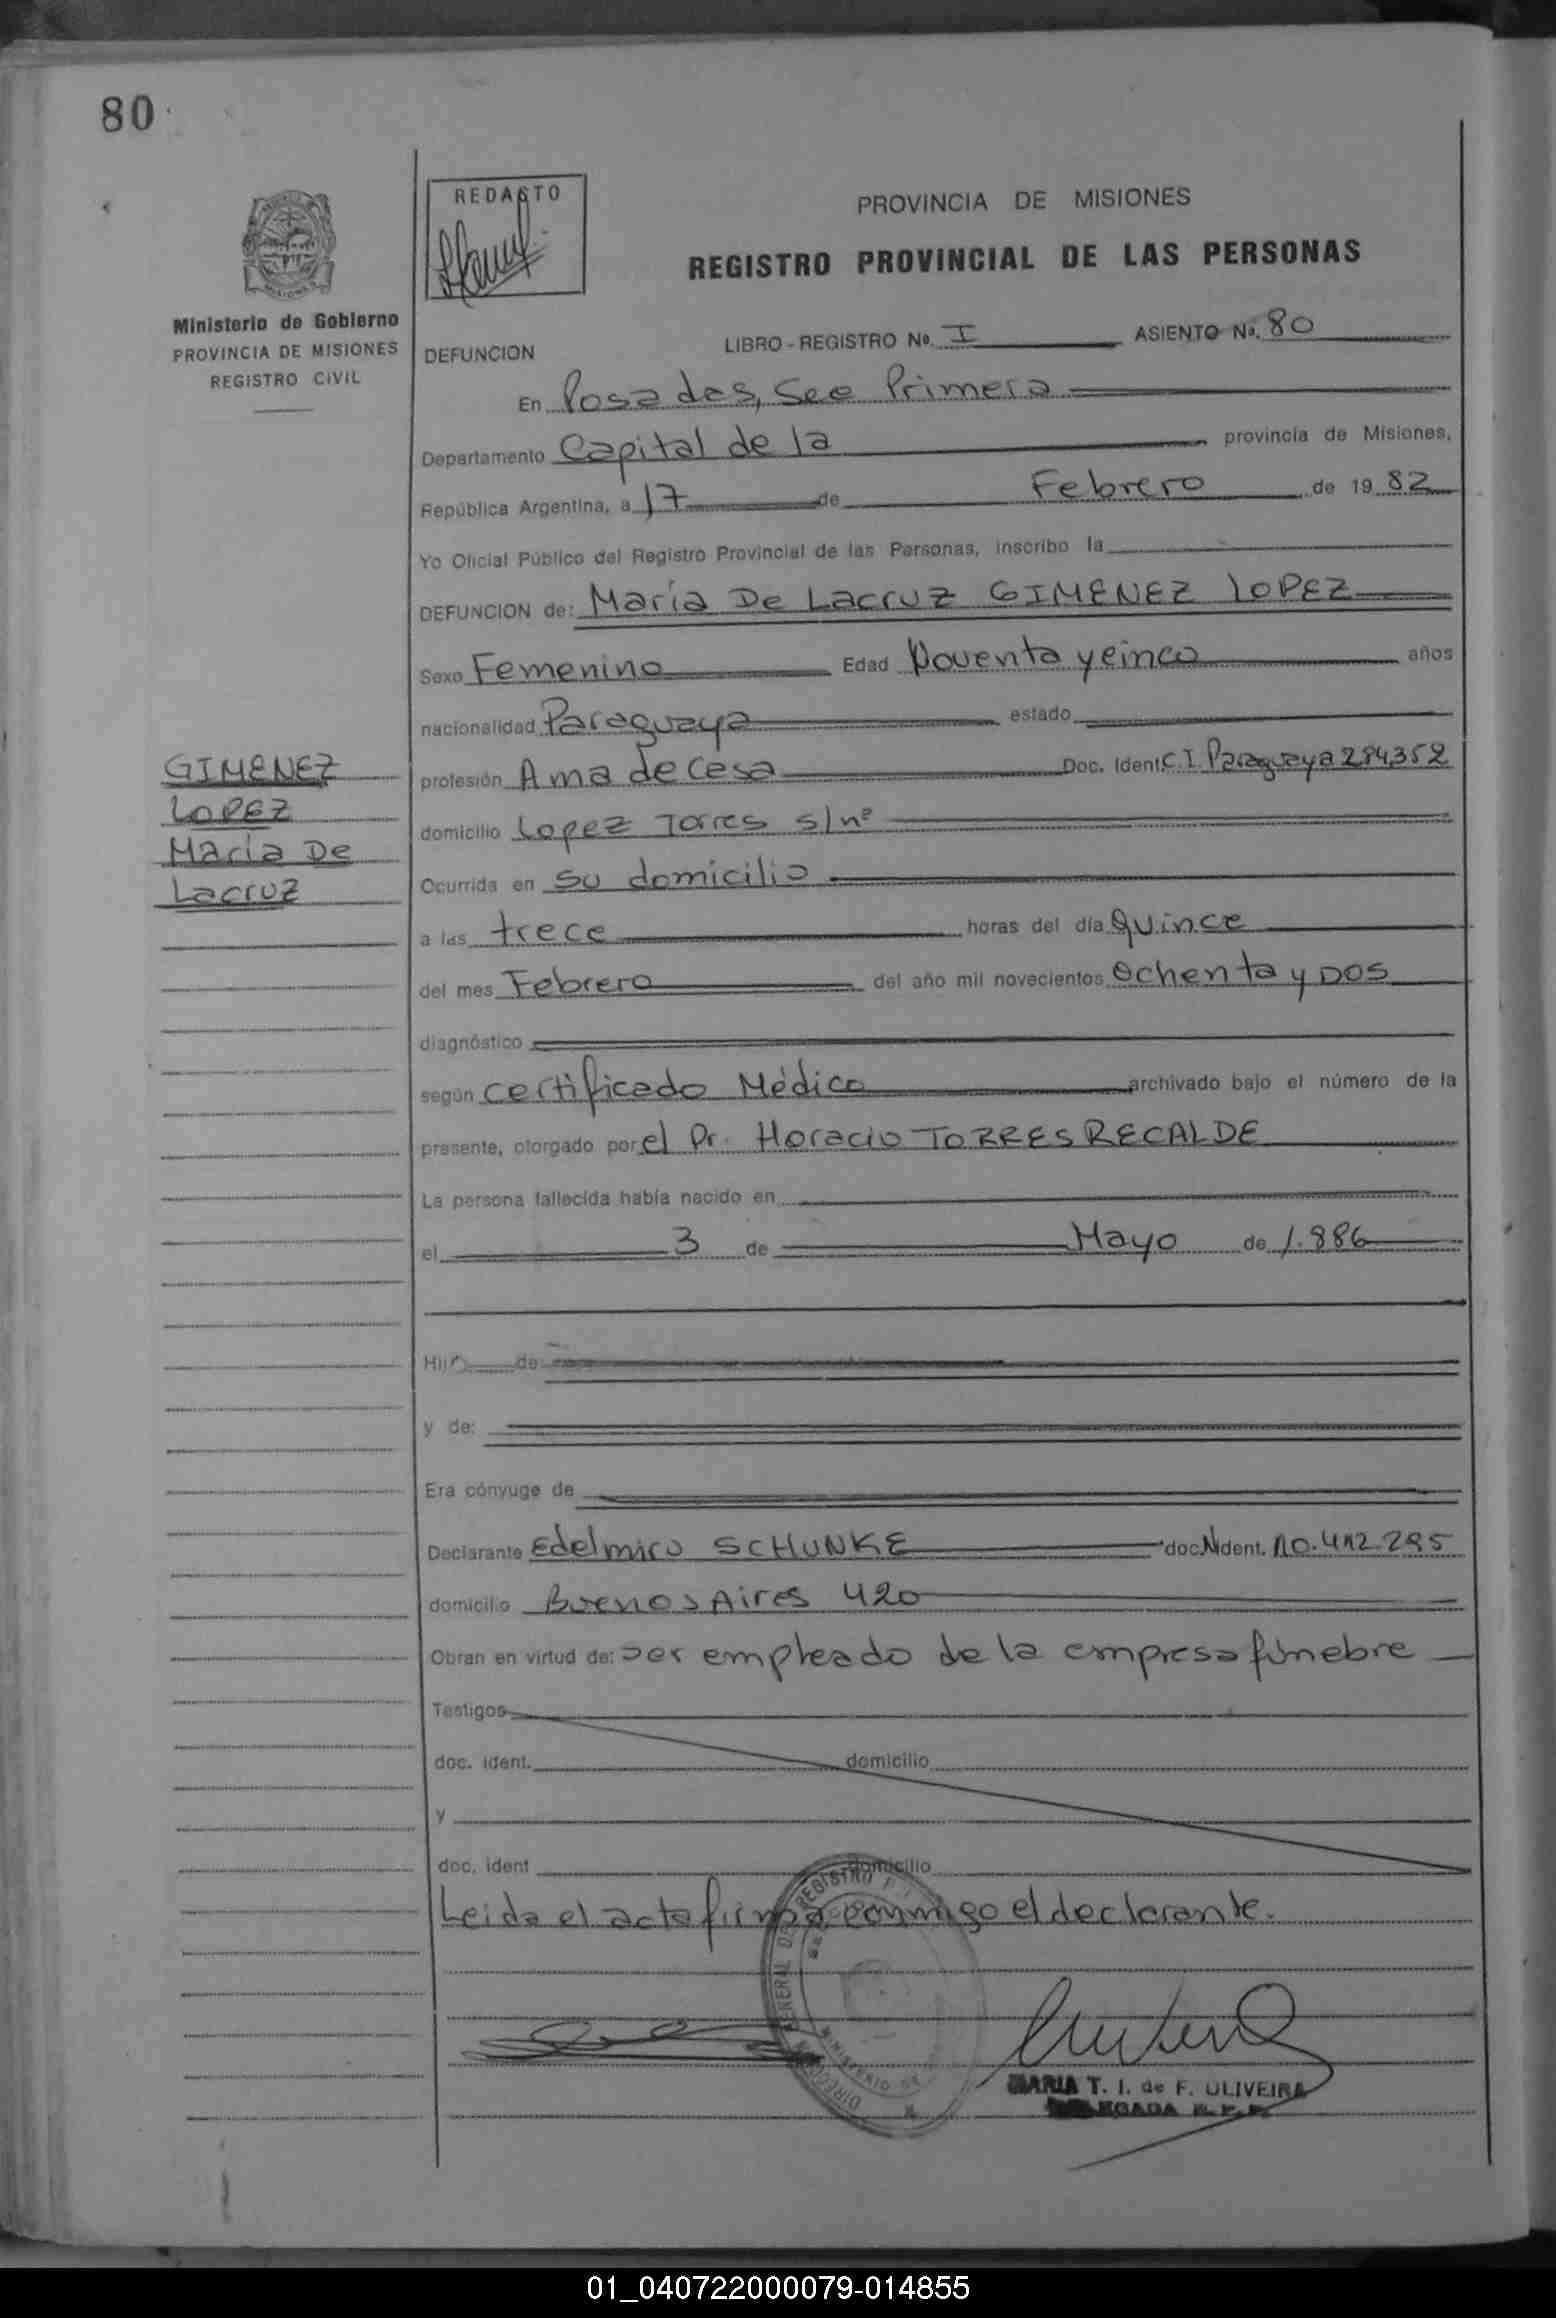 80
REDACTO
PROVINCIA DE MISIONES
REGISTRO PROVINCIAL DE LAS PERSONAS
MISIONES
Ministerio de Gobierno
PROVINCIA DE MISIONES
REGISTRO CIVIL
DEFUNCION LIBRO-REGISTRO No. I ASIENTO No. 80
En Posadas, Sec Primera
Departamento Capital de la provincia de Misiones,
República Argentina, a 17 de Febrero de 1982
Yo Oficial Público del Registro Provincial de las Personas, inscribo la
DEFUNCION de: María De Lacruz GIMENEZ LOPEZ
Sexo Femenino Edad Noventa y cinco años
nacionalidad Paraguaya estado
GIMENEZ
LOPEZ
María De
Lacruz
profesión Ama de casa Doc. Ident. C.I. Paraguaya 284,352
domicilio Lopez Torres s/nº
Ocurrida en su domicilio
a las trece horas del día Quince
del mes Febrero del año mil novecientos Ochenta y DOS
diagnóstico
según certificado Médico archivado bajo el número de la
presente, otorgado por el Dr. Horacio TORRES RECALDE
La persona fallecida había nacido en
el 3 de Mayo de 1.886
Hij de
y de:
Era cónyuge de
Declarante Edelmiro SCHUNKE doc. Ident. 10.412.295
domicilio Buenos Aires 420
Obran en virtud de: ser empleado de la empresa fúnebre
Testigos
doc. ident. domicilio
y
doc. ident domicilio
Leida el acta firma conmigo el declarante.
MARIA T. I. de F. OLIVEIRA
DELEGADA R. P. P.
01_040722000079-014855